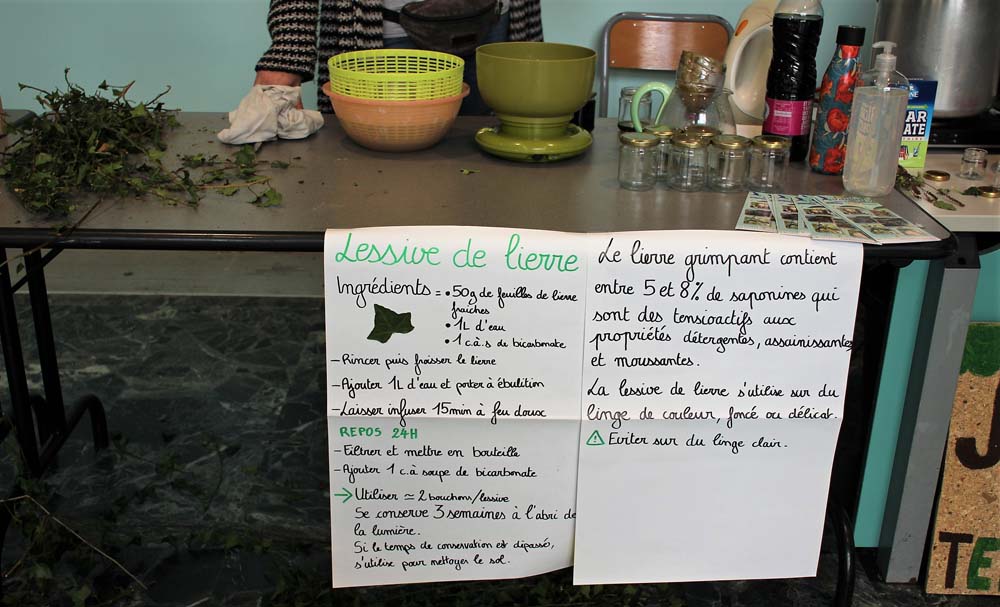 Lessive de lierre
Ingrédients = • 50g de feuilles de lierre
fraîches
• 1L d'eau
• 1 c.à.s de bicarbonate
– Rincer puis froisser le lierre
– Ajouter 1L d'eau et porter à ébulition
– Laisser infuser 15min à feu doux
REPOS 24H
– Filtrer et mettre en bouteille
– Ajouter 1 c.à soupe de bicarbonate
→ Utiliser ≃ 2 bouchons/lessive
Se conserve 3 semaines à l'abri de
la lumière.
Si le temps de conservation est dépassé,
s'utilise pour nettoyer le sol.
Le lierre grimpant contient
entre 5 et 8% de saponines qui
sont des tensioactifs aux
propriétés détergentes, assainissantes
et moussantes.
La lessive de lierre s'utilise sur du
linge de couleur, foncé ou délicat.
⚠ Eviter sur du linge clair.
J
TE